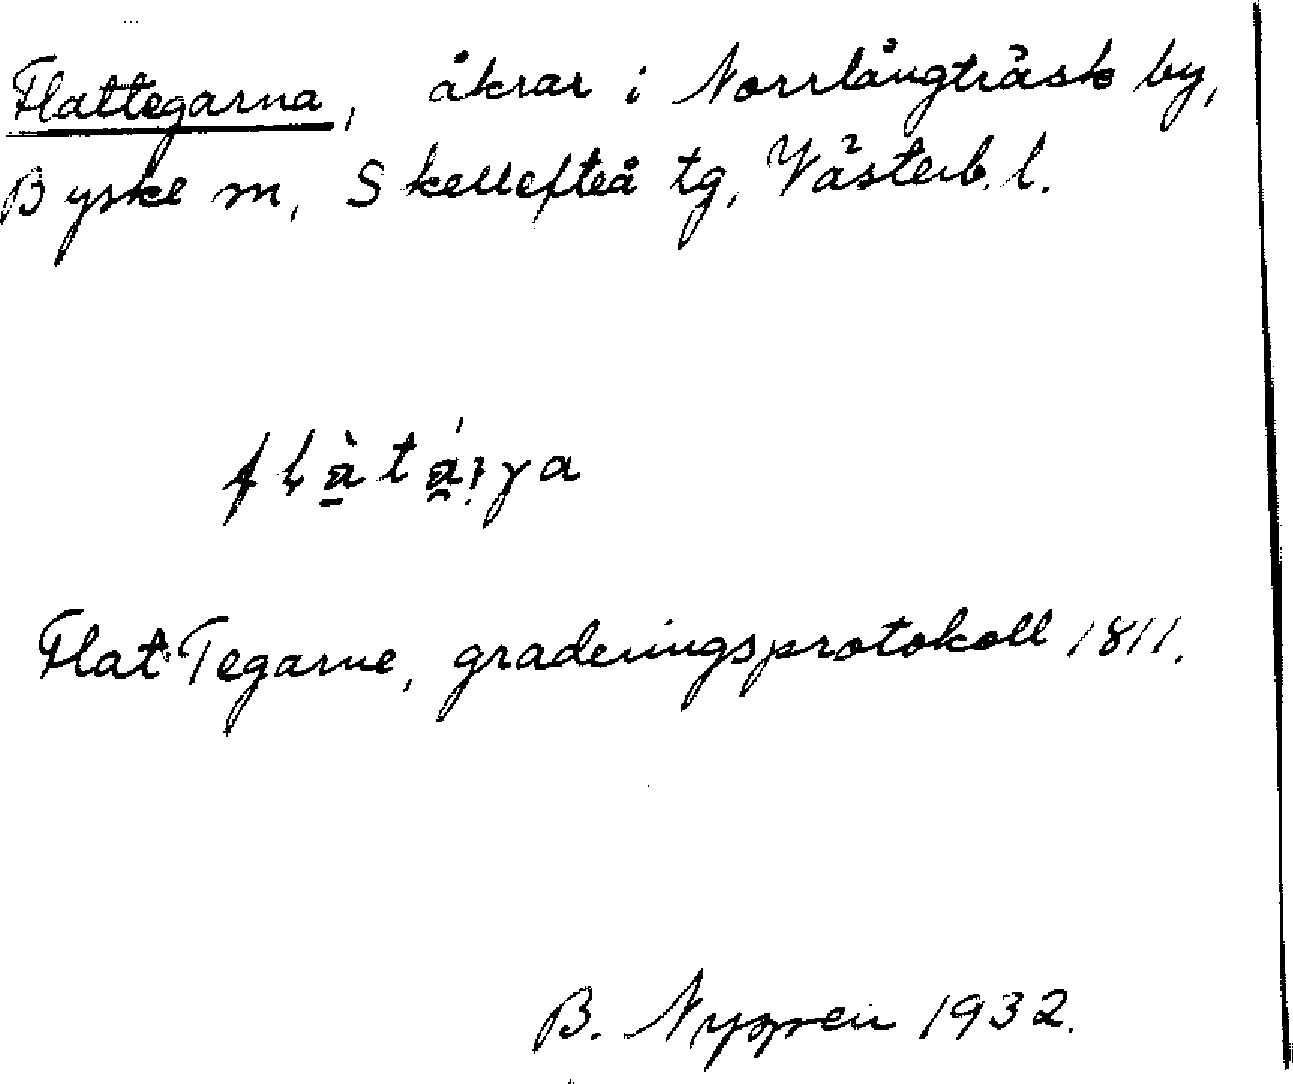 Flattegarna, åkrar i Norrlångträsk by,
Byske m, Skellefteå tg, Västerb. l.
Flat Tegarne, graderingsprotokoll 1811.
B. 1932.